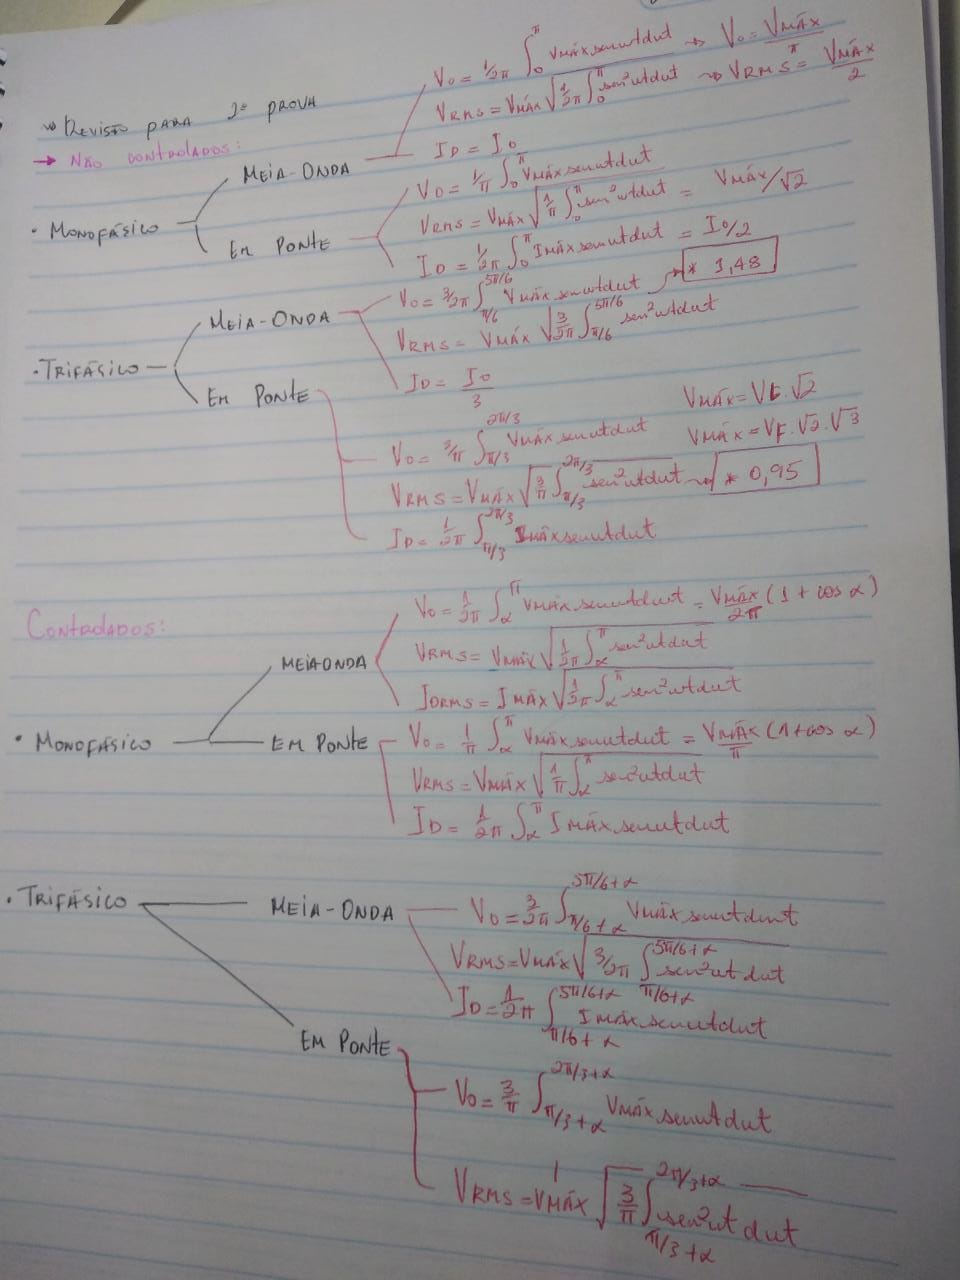 → Revisão para 2ª prova
→ Não controlados:
• Monofásico
Meia-onda
V₀ = 1/2π ∫₀^π Vmáx senωtdωt → V₀ = Vmáx/π
VRMS = Vmáx √(1/2π ∫₀^π sen²ωtdωt) → VRMS = Vmáx/2
ID = I₀
Em ponte
V₀ = 1/π ∫₀^π Vmáx senωtdωt
VRMS = Vmáx √(1/π ∫₀^π sen²ωtdωt) = Vmáx/√2
ID = 1/2π ∫₀^π Imáx senωtdωt = I₀/2
• Trifásico
Meia-onda
V₀ = 3/2π ∫_{π/6}^{5π/6} Vmáx senωtdωt → * 1,48
VRMS = Vmáx √(3/2π ∫_{π/6}^{5π/6} sen²ωtdωt)
ID = I₀/3
Em ponte
Vmáx = VL.√2
Vmáx = VF.√2.√3
V₀ = 3/π ∫_{π/3}^{2π/3} Vmáx senωtdωt
VRMS = Vmáx √(3/π ∫_{π/3}^{2π/3} sen²ωtdωt) → * 0,95
ID = 1/2π ∫_{π/3}^{2π/3} Imáx senωtdωt
Controlados:
• Monofásico
Meia onda
V₀ = 1/2π ∫_α^π Vmáx senωtdωt = Vmáx/2π (1 + cos α)
VRMS = Vmáx √(1/2π ∫_α^π sen²ωtdωt)
IDRMS = Imáx √(1/2π ∫_α^π sen²ωtdωt)
Em ponte
V₀ = 1/π ∫_α^π Vmáx senωtdωt = Vmáx/π (1+cos α)
VRMS = Vmáx √(1/π ∫_α^π sen²ωtdωt)
ID = 1/2π ∫_α^π Imáx senωtdωt
• Trifásico
Meia-onda
V₀ = 3/2π ∫_{π/6+α}^{5π/6+α} Vmáx senωtdωt
VRMS = Vmáx √(3/2π ∫_{π/6+α}^{5π/6+α} sen²ωt dωt)
ID = 1/2π ∫_{π/6+α}^{5π/6+α} Imáx senωtdωt
Em ponte
V₀ = 3/π ∫_{π/3+α}^{2π/3+α} Vmáx senωtdωt
VRMS = Vmáx √(3/π ∫_{π/3+α}^{2π/3+α} sen²ωt dωt)